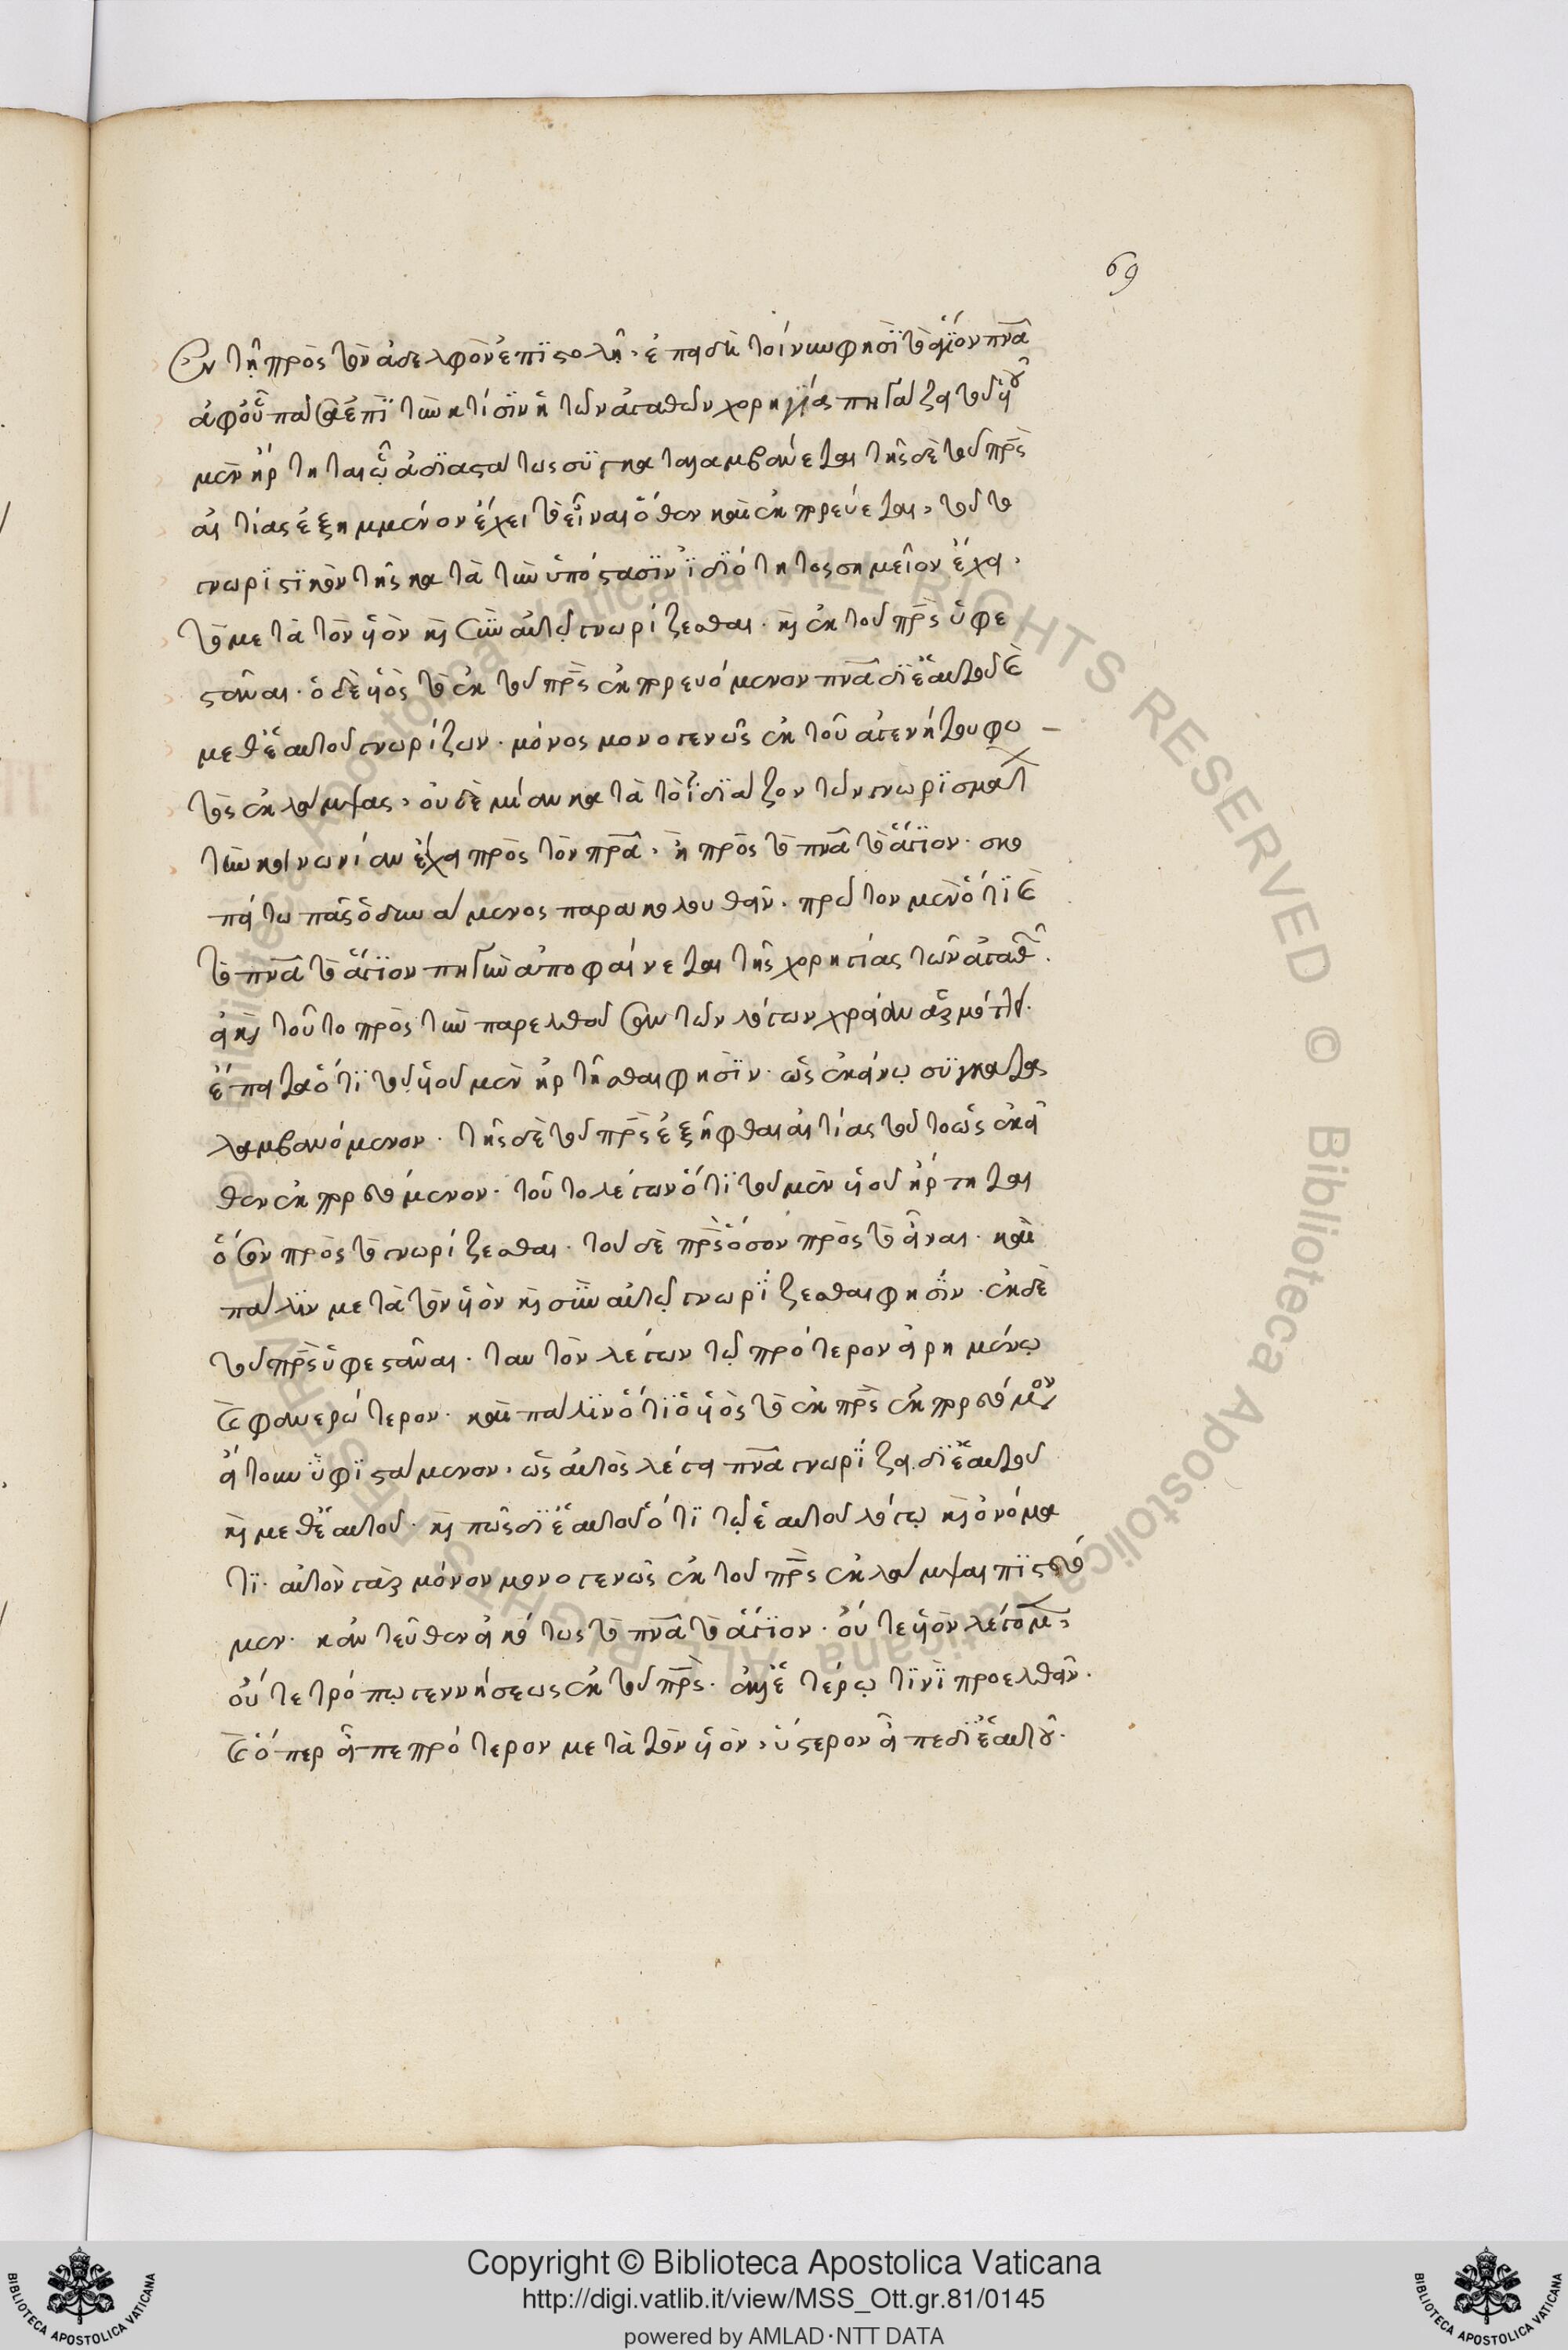 69
Ἐν τῇ πρὸς τὸν ἀδελφὸν ἐπιστολῇ. ἐπειδὴ τοίνυν φησὶ τὸ ἅγιον πνᾶ
ἀφ' οὗ πᾶσα ἐπὶ τὴν κτίσιν ἡ τῶν ἀγαθῶν χορηγίας πηγάζει τοῦ υἱοῦ
μὲν ἤρτηται ᾧ ἀδιαστάτως συγκαταλαμβάνεται τῆς δὲ τοῦ πρς
αἰτίας ἐξημμένον ἔχει τὸ εἶναι ὅθεν καὶ ἐκπορεύεται, τοῦτο
γνωριστικὸν τῆς κατὰ τὴν ὑπόστασιν ἰδιότητος σημεῖον ἔχει,
τὸ μετὰ τὸν υἱὸν κὶ σὺν αὐτῷ γνωρίζεσθαι. κὶ ἐκ τοῦ πρς ὑφε
στάναι. ὁ δὲ υἱὸς τὸ ἐκ τοῦ πρς ἐκπορευόμενον πνᾶ δι' ἑαυτοῦ κὶ
μεθ' ἑαυτοῦ γνωρίζων. μόνος μονογενῶς ἐκ τοῦ ἀγεννήτου φω
τὸς ἐκλάμψας, οὐδεμίαν κατὰ τὸ ἰδιάζον τῶν γνωρισμάτ
τὴν κοινωνίαν ἔχει πρὸς τὸν πρα, ἢ πρὸς τὸ πνᾶ τὸ ἅγιον. σκο
πείτω πᾶς ὁ δυνάμενος παρακολουθεῖν. πρῶτον μὲν ὅτι κὶ
τὸ πνᾶ τὸ ἅγιον πηγὴν ἀποφαίνεται τῆς χορηγίας τῶν ἀγαθ.
εἰ κὶ τοῦτο πρὸς τὴν παρελθοῦσαν τῶν λόγων χρείαν
ἔπειτα ὅτι τοῦ υἱοῦ μὲν ἠρτῆσθαι φησὶν. ὡς ἐκείνῳ συγκατα
λαμβανόμενον. τῆς δὲ τοῦ πρς ἐξῆφθαι αἰτίας τοῦτο ὡς ἐκεῖ
θεν ἐκπορευόμενον. τοῦτο λέγων ὅτι τοῦ μὲν υἱοῦ ἤρτηται
ὅσον πρὸς τὸ γνωρίζεσθαι. τοῦ δὲ πρς ὅσον πρὸς τὸ εἶναι. καὶ
πάλιν μετὰ τὸν υἱὸν κὶ σὺν αὐτῷ γνωρίζεσθαι φησὶν. ἐκ δὲ
τοῦ πρς ὑφεστάναι. ταυτὸν λέγων τῷ πρότερον εἰρημένῳ
κὶ φανερώτερον. καὶ πάλιν ὅτι ὁ υἱὸς τὸ ἐκ πρς ἐκπορευόμενον
εἴτουν ὑφιστάμενον, ὡς αὐτὸς λέγει πνᾶ γνωρίζει δι' ἑαυτοῦ
κὶ μεθ' ἑαυτοῦ. κὶ πῶς δι' ἑαυτοῦ ὅτι τῷ ἑαυτοῦ λόγῳ κὶ ὀνόμα
τι. αὐτὸν γὰρ μόνον μονογενῶς ἐκ τοῦ πρς ἐκλάμψαι πιστεύο
μεν. κἀντεῦθεν εἰκότως τὸ πνᾶ τὸ ἅγιον. οὔτε υἱὸν λέγομεν,
οὔτε τρόπῳ γεννήσεως ἐκ τοῦ πρς. ἀλλ' ἑτέρῳ τινὶ προελθεῖν.
κὶ ὅπερ εἶπε πρότερον μετὰ τὸν υἱὸν, ὕστερον εἶπε δι' ἑαυτοῦ.
Copyright © Biblioteca Apostolica Vaticana
http://digi.vatlib.it/view/MSS_Ott.gr.81/0145
powered by AMLAD·NTT DATA
BIBLIOTECA APOSTOLICA VATICANA
BIBLIOTECA APOSTOLICA VATICANA